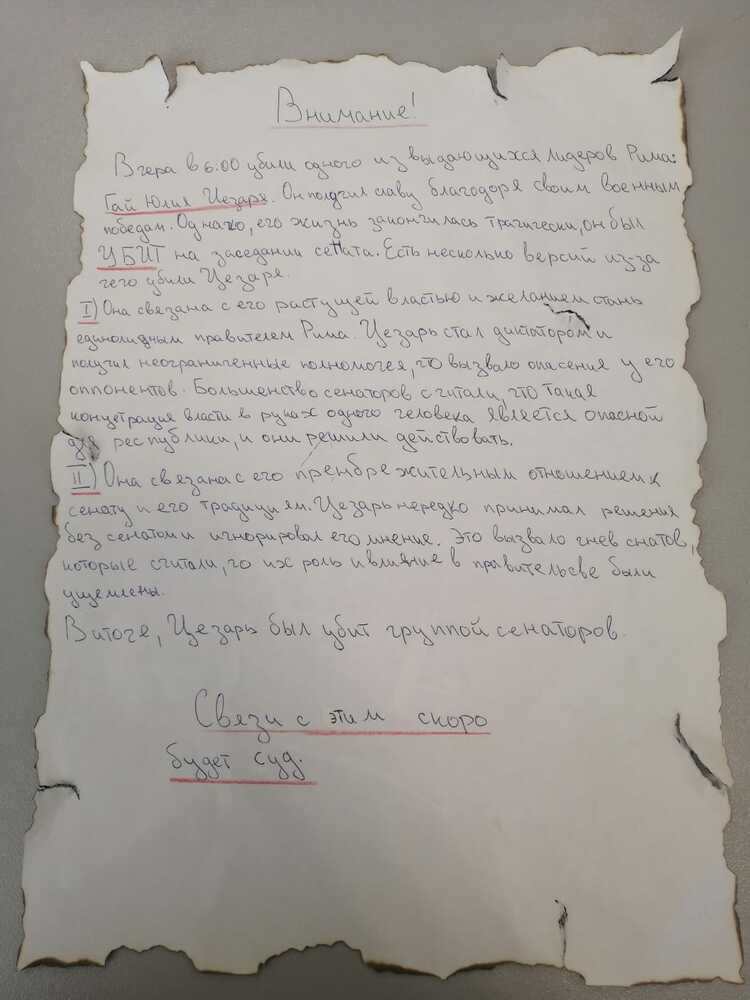 Внимание!
Вчера в 6:00 убили одного из выдающихся лидеров Рима:
Гай Юлия Цезаря. Он получил славу благодоря своим военным
победам. Однако, его жизнь закончилась трагически, он был
УБИТ на заседании сената. Есть несколько версий из-за
чего убили Цезаря.
I) Она связана с его растущей властью и желанием стать
единоличным правителем Рима. Цезарь стал диктатором и
получил неограниченные полномочея, что вызвало опасения у его
оппонентов. Большенство сенаторов считали, что такая
концетрация власти в руках одного человека является опасной
для республики, и они решили действовать.
II) Она связана с его пренбрежительным отношением к
сенату и его традициям. Цезарь нередко принимал решения
без сенатом и игнорировал его мнение. Это вызвало гнев снатов,
которые считали, го их роль и влияние в правительсве были
ущемлены.
В итоге, Цезарь был убит группой сенаторов.
Связи с этим скоро
будет суд.